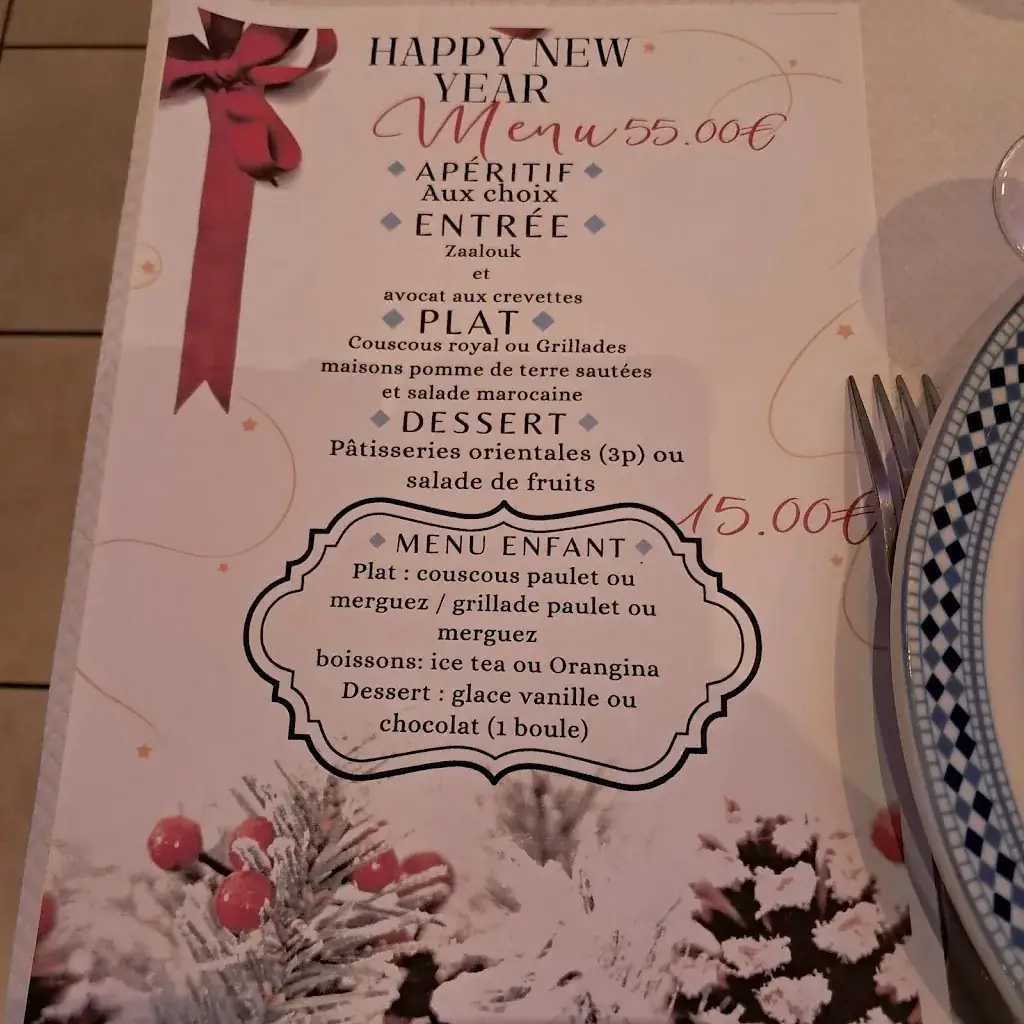 HAPPY NEW
YEAR
Menu 55.00€
APÉRITIF
Aux choix
ENTRÉE
Zaalouk
et
avocat aux crevettes
PLAT
Couscous royal ou Grillades
maisons pomme de terre sautées
et salade marocaine
DESSERT
Pâtisseries orientales (3p) ou
salade de fruits
15.00€
MENU ENFANT
Plat : couscous paulet ou
merguez / grillade paulet ou
merguez
boissons: ice tea ou Orangina
Dessert : glace vanille ou
chocolat (1 boule)